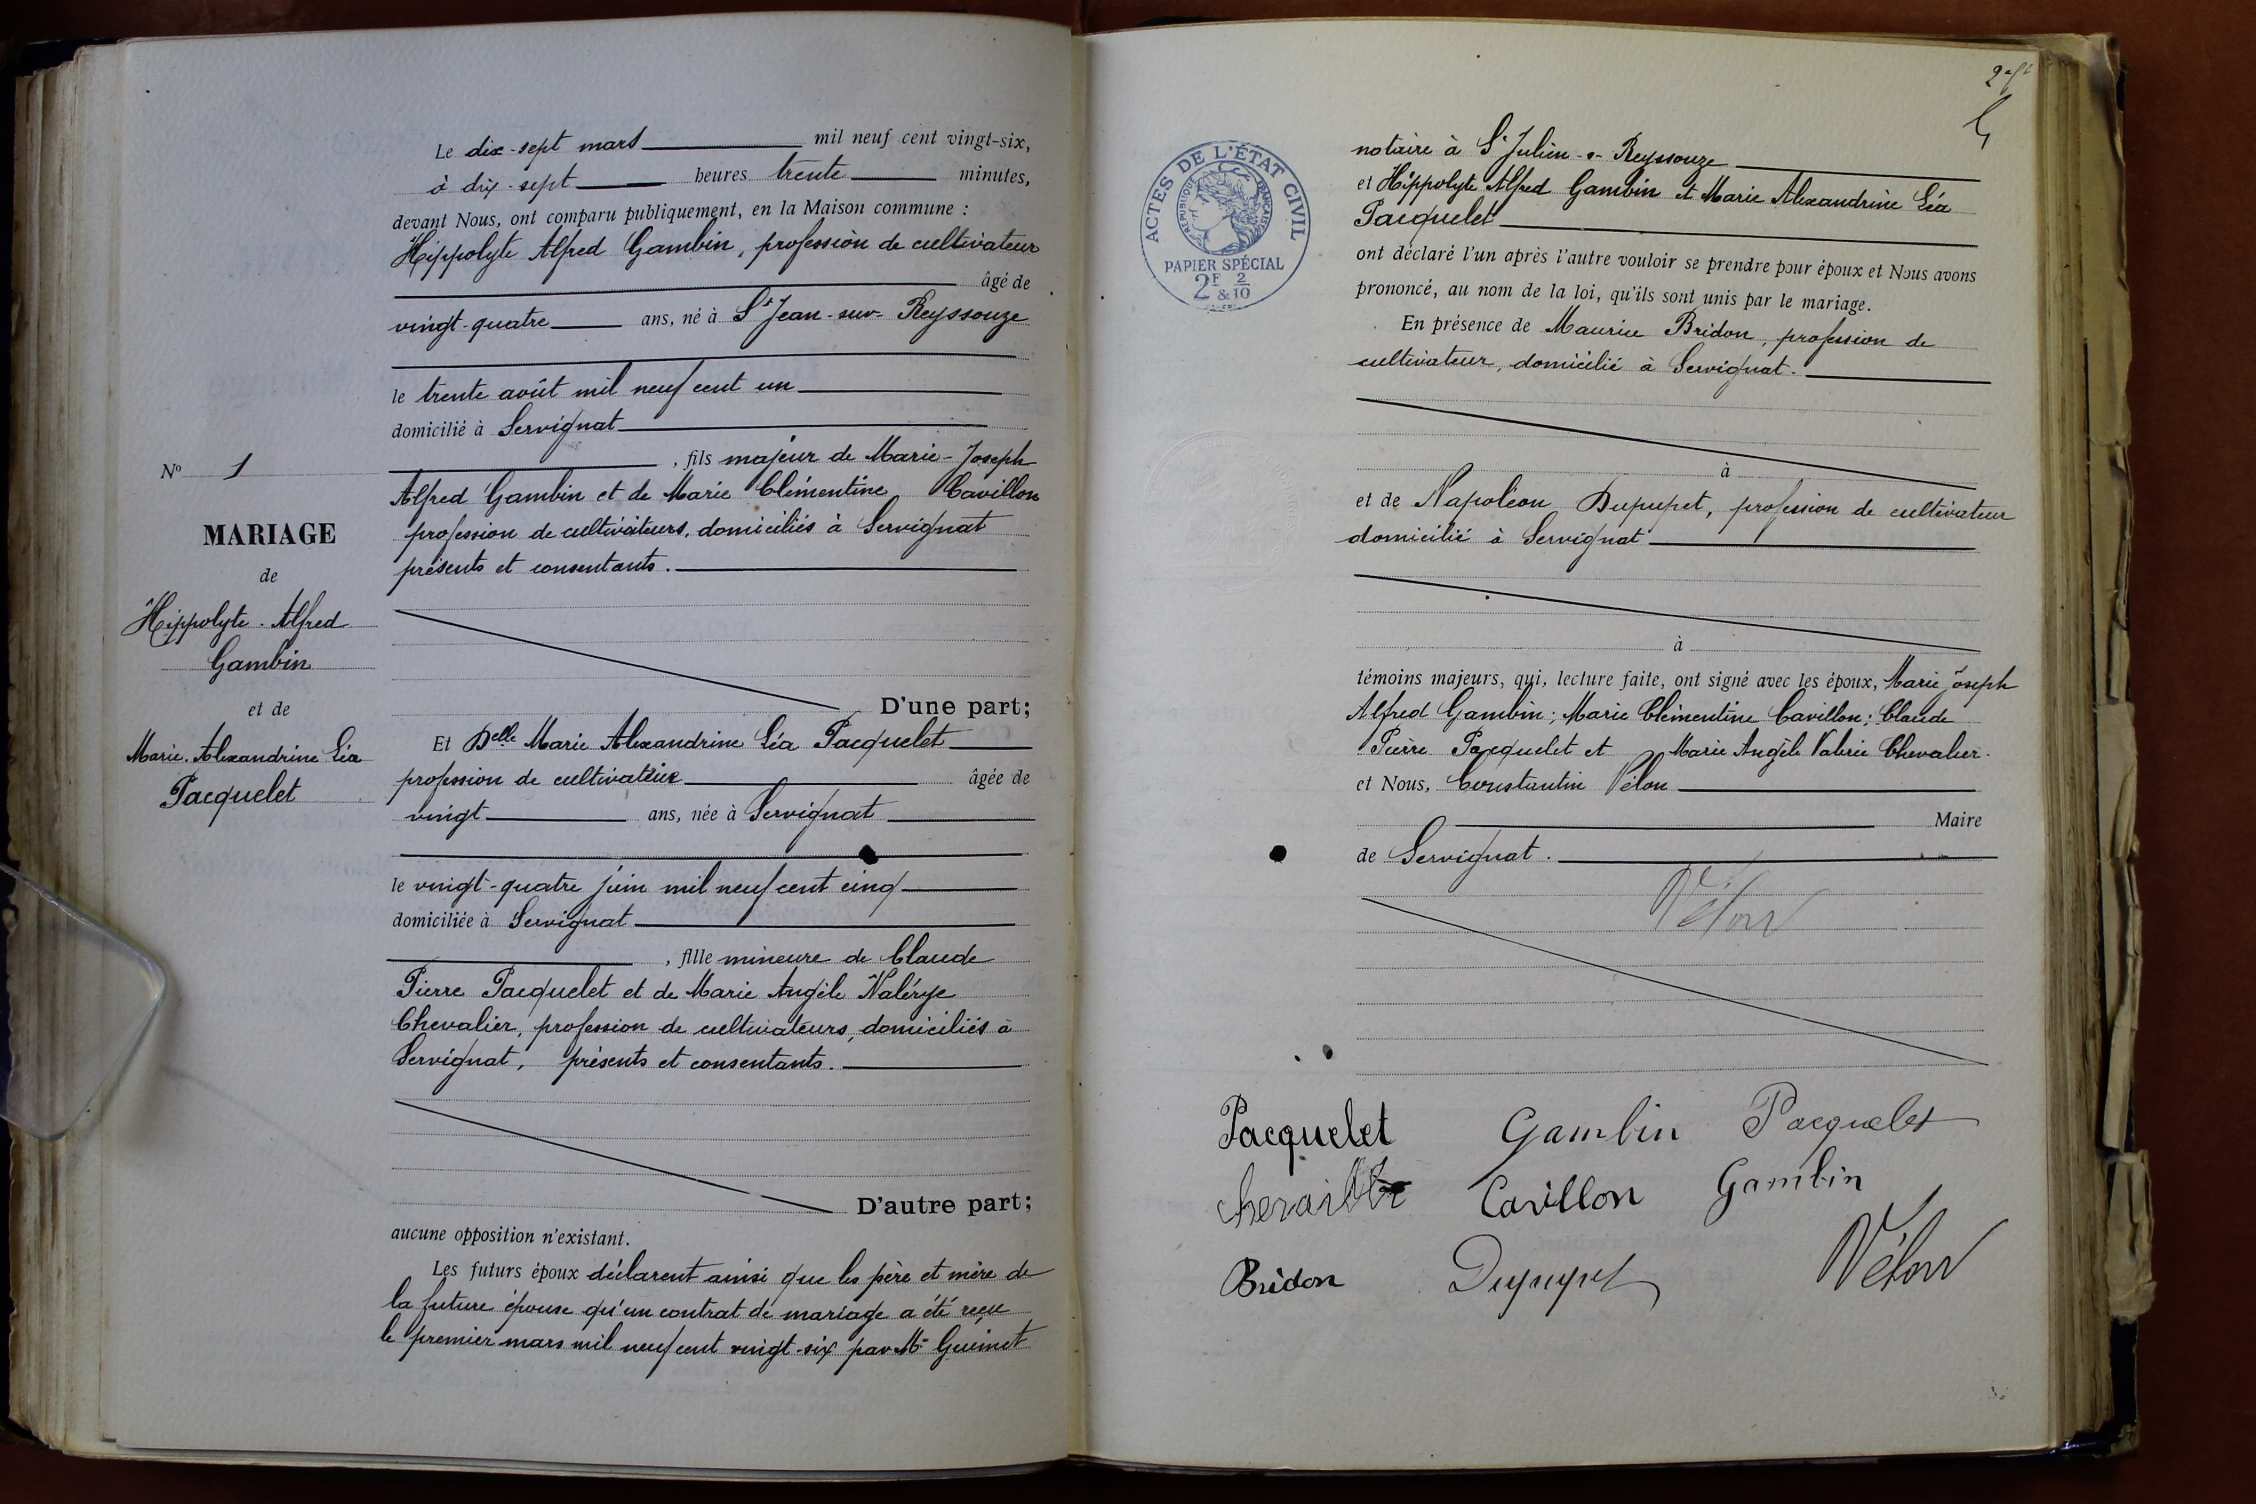 Le dix-sept mars mil neuf cent vingt-six,
à dix-sept heures trente minutes,
devant Nous, ont comparu publiquement, en la Maison commune :
Hippolyte Alfred Gambin, profession de cultivateur
âgé de
vingt-quatre ans, né à St Jean-sur-Reyssouze
le trente août mil neuf cent un
domicilié à Servignat
, fils majeur de Marie-Joseph
Alfred Gambin et de Marie Clémentine Cavillon
profession de cultivateurs, domiciliés à Servignat
présents et consentants.
D'une part;
Et Delle Marie Alexandrine Léa Pacquelet
profession de cultivatrice âgée de
vingt ans, née à Servignat
le vingt-quatre juin mil neuf cent cinq
domiciliée à Servignat
, fille mineure de Claude
Pierre Pacquelet et de Marie Angèle Valérye
Chevalier, profession de cultivateurs, domiciliés à
Servignat, présents et consentants.
D'autre part;
aucune opposition n'existant.
Les futurs époux déclarent ainsi que les père et mère de
la future épouse qu'un contrat de mariage a été reçu
le premier mars mil neuf cent vingt-six par Me Guimet
No 1
MARIAGE
de
Hippolyte-Alfred
Gambin
et de
Marie-Alexandrine Léa
Pacquelet
ACTES DE L'ÉTAT CIVIL
RÉPUBLIQUE FRANÇAISE
PAPIER SPÉCIAL
2F & 2/10
notaire à St Julien-s-Reyssouze
et Hippolyte Alfred Gambin et Marie Alexandrine Léa
Pacquelet
ont déclaré l'un après l'autre vouloir se prendre pour époux et Nous avons
prononcé, au nom de la loi, qu'ils sont unis par le mariage.
En présence de Maurice Bridon, profession de
cultivateur, domicilié à Servignat.
à
et de Napoléon Dupupet, profession de cultivateur
domicilié à Servignat
à
témoins majeurs, qui, lecture faite, ont signé avec les époux, Marie Joseph
Alfred Gambin; Marie Clémentine Cavillon; Claude
Pierre Pacquelet et Marie Angèle Valerie Chevalier.
et Nous, Constantin Vélon
Maire
de Servignat.
Vélon
Pacquelet Gambin Pacquelet
Cavillon Gambin
Bridon Dupupet Vélon